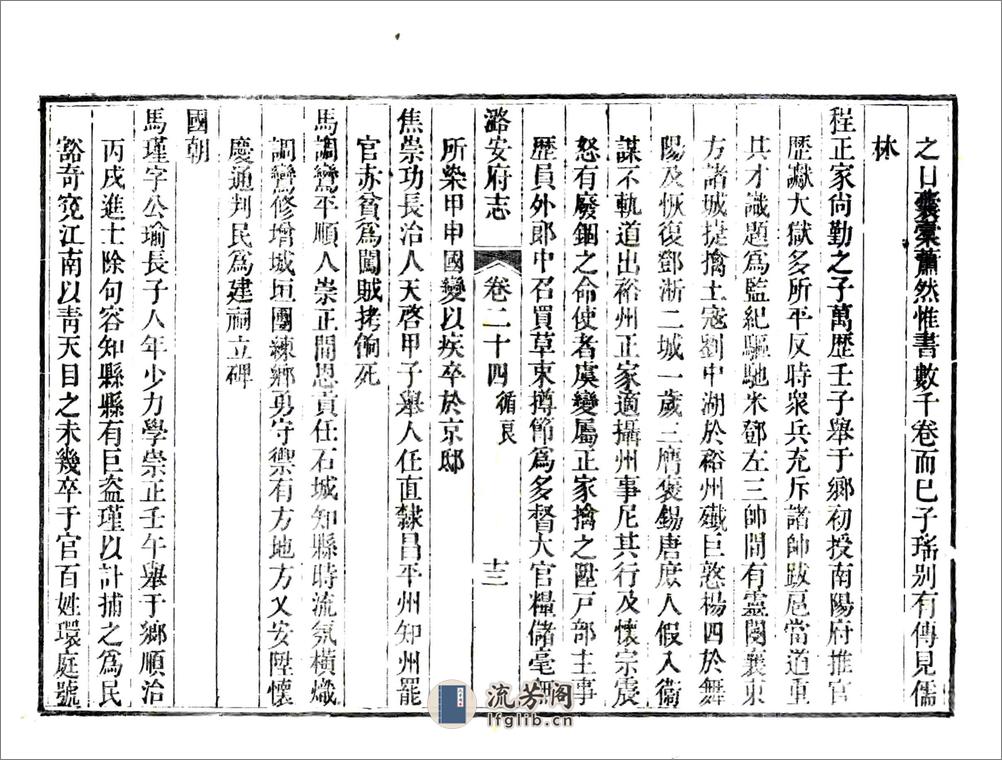 之日囊橐蕭然惟書數千卷而已子瑤别有傳見儒
林
程正家尙勤之子萬歷壬子舉于鄉初授南陽府推官
歷讞大獄多所平反時衆兵充斥諸帥跋扈當道重
其才識題爲監紀驅馳米鄧左三帥間有靈閿襄東
方諸城捷擒土寇劉中湖於裕州殲巨憝楊四於舞
陽及恢復鄧淅二城一歲三膺褒錫唐庶人假入衞
謀不軌道出裕州正家適攝州事尼其行及懷宗震
怒有廢錮之命使者虞變屬正家擒之陞戸部主事
歷員外郎中召買草束撙節爲多督大官糧儲毫無
潞安府志
卷二十四 循良
十三
所染甲申國變以疾卒於京邸
焦崇功長治人天啓甲子舉人任直隸昌平州知州罷
官赤貧爲闖賊拷掠死
馬調鸞平順人崇正間恩貢任石城知縣時流氛橫熾
調鸞修增城垣團練鄉勇守禦有方地方乂安陞懷
慶通判民爲建祠立碑
國朝
馬瑾字公瑜長子人年少力學崇正壬午舉于鄉順治
丙戌進士除句容知縣縣有巨盜瑾以計捕之爲民
豁奇寃江南以靑天目之未幾卒于官百姓環庭號
流芳阁
lfglib.cn